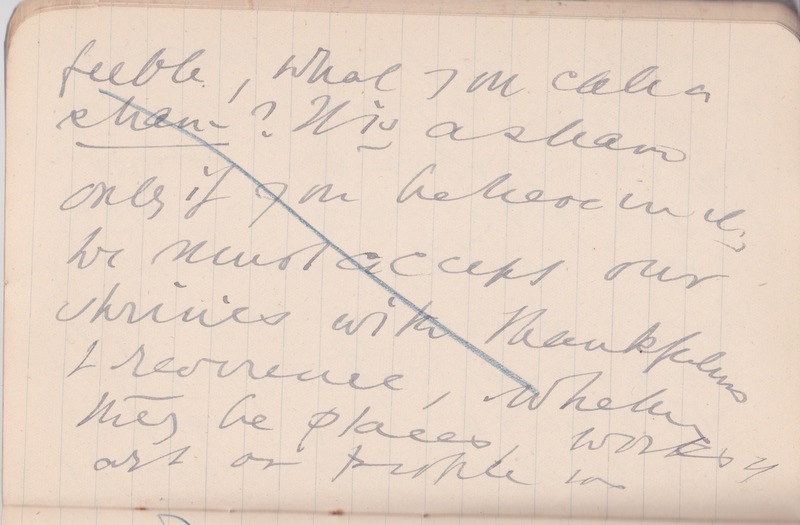 feeble, what you call a
sham? It is a sham
only if you believe in it,
We must accept our
shrines with thankfulness
& reverence, whether
they be places, works of
art or people we